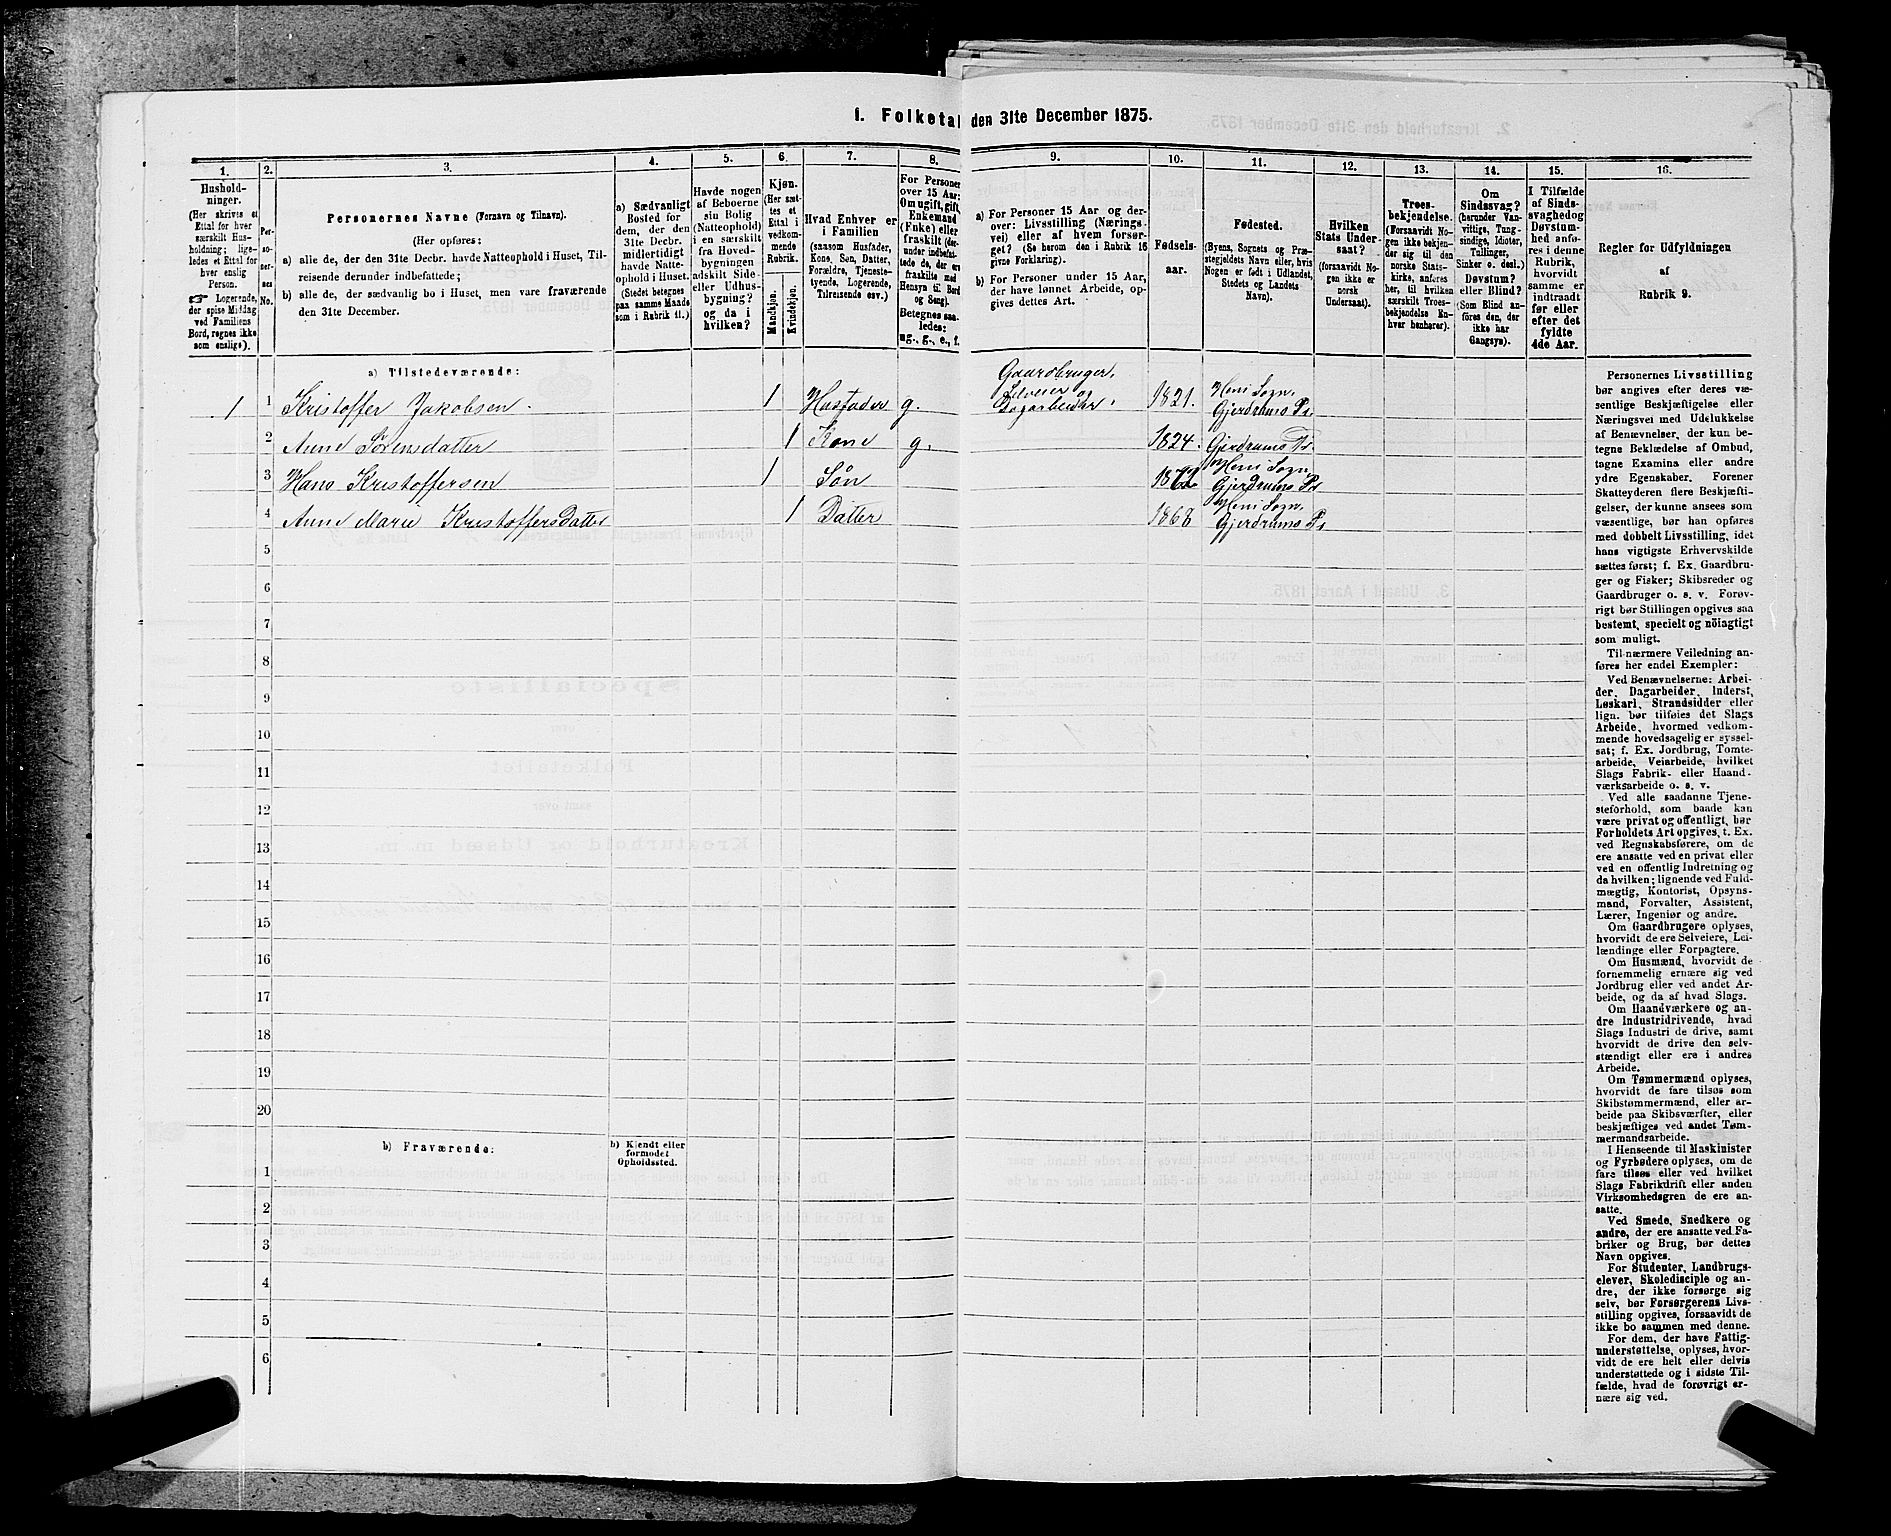 1. Folketal den 31te December 1875.
1. 2. 3. 4. 5. 6. 7. 8. 9. 10. 11. 12. 13. 14. 15. 16.
Hushold-
ninger.
(Her skrives et
Ettal for hver
særskilt Hus-
holdning; lige-
ledes et Ettal for
hver enslig
Person.
☞ Logerende,
der spise Middag
ved Familiens
Bord, regnes ikke
som enslige).
Per-
so-
ner-
nes
No.
Personernes Navne (Fornavn og Tilnavn).
(Her opføres:
a) alle de, der den 31te Decbr. havde Natteophold i Huset, Til-
reisende derunder indbefattede;
b) alle de, der sædvanlig bo i Huset, men vare fraværende
den 31te December.
a) Sædvanligt
Bosted for
dem, der den
31te Decbr.
midlertidigt
havde Natte-
ophold i Huset.
(Stedet betegnes
paa samme Maade
som i Rubrik 11.)
Havde nogen
af Beboerne
sin Bolig
(Natteophold)
i en særskilt
fra Hoved-
bygningen
adskilt Side-
eller Udhus-
bygning?
og da i
hvilken?
Kjøn.
(Her sæt-
tes et
Ettal i
vedkom-
mende
Rubrik.
Mandkjøn.
Kvindekjøn.
Hvad Enhver er
i Familien
(saasom Husfader,
Kone, Søn, Datter,
Forældre, Tjeneste-
tyende, Logerende,
Tilreisende osv.)
For Personer
over 15 Aar:
Om ugift, gift,
Enkemand
(Enke) eller
fraskilt (der-
under indbefat-
tede de, der ere
fraskilte med
Hensyn til Bord
og Seng).
Betegnes saa-
ledes:
ug., g., e., f.
a) For Personer 15 Aar og der-
over: Livsstilling (Nærings-
vei) eller af hvem forsør-
get? (Se herom den i Rubrik 16
givne Forklaring).
b) For Personer under 15 Aar,
der have lønnet Arbeide, op-
gives dettes Art.
Fødsels-
aar.
Fødested.
(Byens, Sognets og Præ-
stegjeldets Navn eller, hvis
Nogen er født i Udlandet,
Stedets og Landets
Navn).
Hvilken
Stats Under-
saat?
(forsaavidt No-
gen ikke er
norsk
Undersaat).
Troes-
bekjendelse.
(Forsaavidt No-
gen ikke bekjen-
der sig til den
norske Stats-
kirke, anføres
her, til hvilken
særskilt Troes-
bekjendelse En-
hver henhører).
Om
Sindssvag?
(herunder Van-
vittige, Tung-
sindige, Idioter,
Tullinger,
Sinker o. desl.)
Døvstum?
eller Blind?
(Som Blind an-
føres den, der
ikke har
Gangsyn).
I Tilfælde
af Sinds-
svaghed og
Døvstum-
hed anfø-
res i denne
Rubrik,
hvorvidt
samme er
indtraadt
før eller
efter det
fyldte
4de Aar.
Regler for Udfyldningen
af
Rubrik 9.
a) Tilstedeværende:
1 1 Kristoffer Jakobsen. 1 Husfader g. Gaardbruger, Selveier og Dagarbeider. 1821. Heni Sogn, Gjerdrums Ps
2 Anne Sørensdatter 1 Kone g. 1824. Gjerdrums Ps.
3 Hans Kristoffersen 1 Søn 1872 Heni Sogn, Gjerdrums Ps
4 Anne Marie Kristoffersdatter 1 Datter 1868 Heni Sogn, Gjerdrums Ps
5
6
7
8
9
10
11
12
13
14
15
16
17
18
19
20
b) Fraværende:
b) Kjendt eller
formodet
Opholdssted.
1
2
3
4
5
6
Personernes Livsstilling
bør angives efter deres væ-
sentlige Beskjæftigelse eller
Næringsvei med Udelukkelse
af Benævnelser, der kun be-
tegne Beklædelse af Ombud,
tagne Examina eller andre
ydre Egenskaber. Forener
Skatteyderen flere Beskjæfti-
gelser, der kunne ansees som
væsentlige, bør han opføres
med dobbelt Livsstilling, idet
hans vigtigste Erhvervskilde
sættes først; f. Ex. Gaardbru-
ger og Fisker; Skibsreder og
Gaardbruger o. s. v. Forøv-
rigt bør Stillingen opgives saa
bestemt, specielt og nöiagtigt
som muligt.
Til nærmere Veiledning an-
føres her endel Exempler:
Ved Benævnelserne: Arbei-
der, Dagarbeider, Inderst,
Løskarl, Strandsidder eller
lign. bør tilføies det Slags
Arbeide, hvormed vedkom-
mende hovedsagelig er syssel-
sat; f. Ex. Jordbrug, Tomte-
arbeide, Veiarbeide, hvilket
Slags Fabrik- eller Haand-
værksarbeide o. s. v.
Ved alle saadanne Tjene-
steforhold, som baade kan
være privat og offentligt, bør
Forholdets Art opgives, t. Ex.
ved Regnskabsførere, om de
ere ansatte ved en privat eller
ved en offentlig Indretning og
da hvilken; lignende ved Fuld-
mægtig, Kontorist, Opsyns-
mand, Forvalter, Assistent,
Lærer, Ingeniør og andre.
Om Gaardbrugere oplyses,
hvorvidt de ere Selveiere, Lei-
lændinge eller Forpagtere.
Om Husmænd, hvorvidt de
fornemmelig ernære sig ved
Jordbrug eller ved andet Ar-
beide, og da af hvad Slags.
Om Haandværkere og an-
dre Industridrivende, hvad
Slags Industri de drive, samt
hvorvidt de drive den selv-
stændigt eller ere i andres
Arbeide.
Om Tømmermænd oplyses,
hvorvidt de fare tilsøs som
Skibstømmermænd, eller ar-
beide paa Skibsværfter, eller
beskjæftiges ved andet Tøm-
mermandsarbeide.
I Henseende til Maskinister
og Fyrbødere oplyses, om de
fare tilsøs eller ved hvilket
Slags Fabrikdrift eller anden
Virksomhedsgren de ere an-
satte.
Ved Smede, Snedkere og
andre, der ere ansatte ved Fa-
briker og Brug, bør dettes
Navn opgives.
For Studenter, Landbrugs-
elever, Skoledisciple og an-
dre, der ikke forsørge sig
selv, bør Forsørgerens Livs-
stilling opgives, forsaavidt de
ikke bo sammen med denne.
For dem, der have Fattig-
understøttelse, oplyses, hvor-
vidt de ere helt eller delvis
understøttede og i sidste Til-
fælde, hvad de forøvrigt er-
nære sig ved.